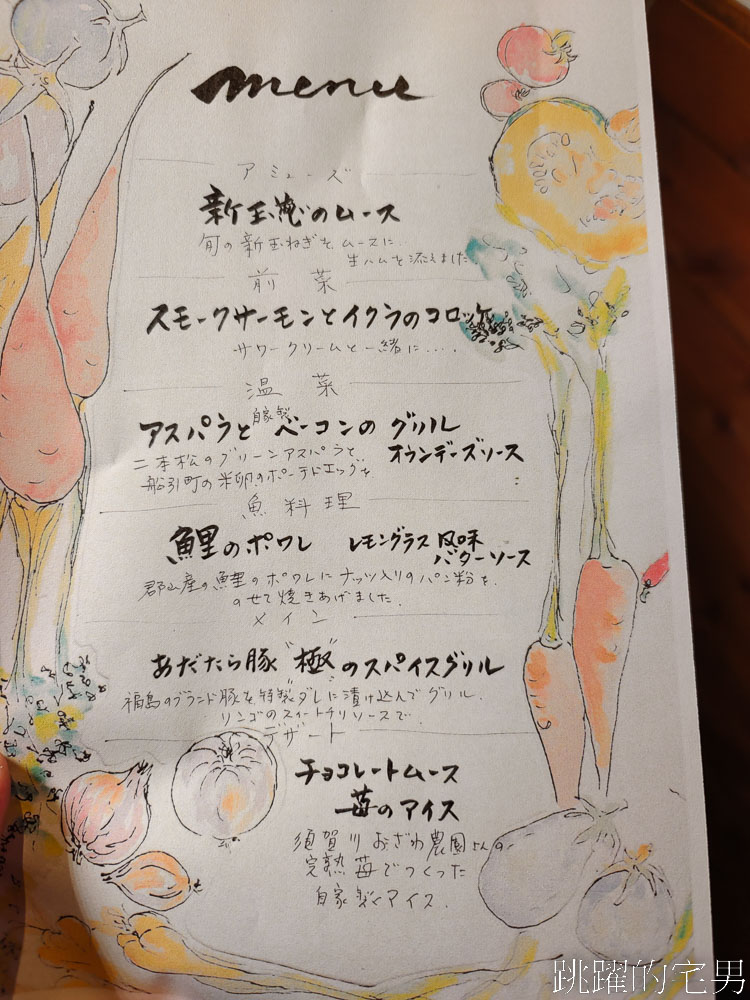 menu
アミューズ
新玉葱のムース
旬の新玉ねぎをムースに
生ハムを添えました
前菜
スモークサーモンとイクラのコロッケ
サワークリームと一緒に....
温菜
アスパラと自家製ベーコンのグリル
オランデーズソース
二本松のグリーンアスパラと
船引町の米卵のポーチドエッグを
魚料理
鯉のポワレ レモングラス風味
バターソース
郡山産の鯉のポワレにナッツ入りのパン粉を
のせて焼きあげました.
メイン
あだたら豚"極"のスパイスグリル
福島のブランド豚を特製ダレに漬け込んでグリル.
リンゴのスイートチリソースで.
デザート
チョコレートムース
苺のアイス
須賀川おざわ農園さんの
完熟苺でつくった
自家製アイス.
跳躍的宅男